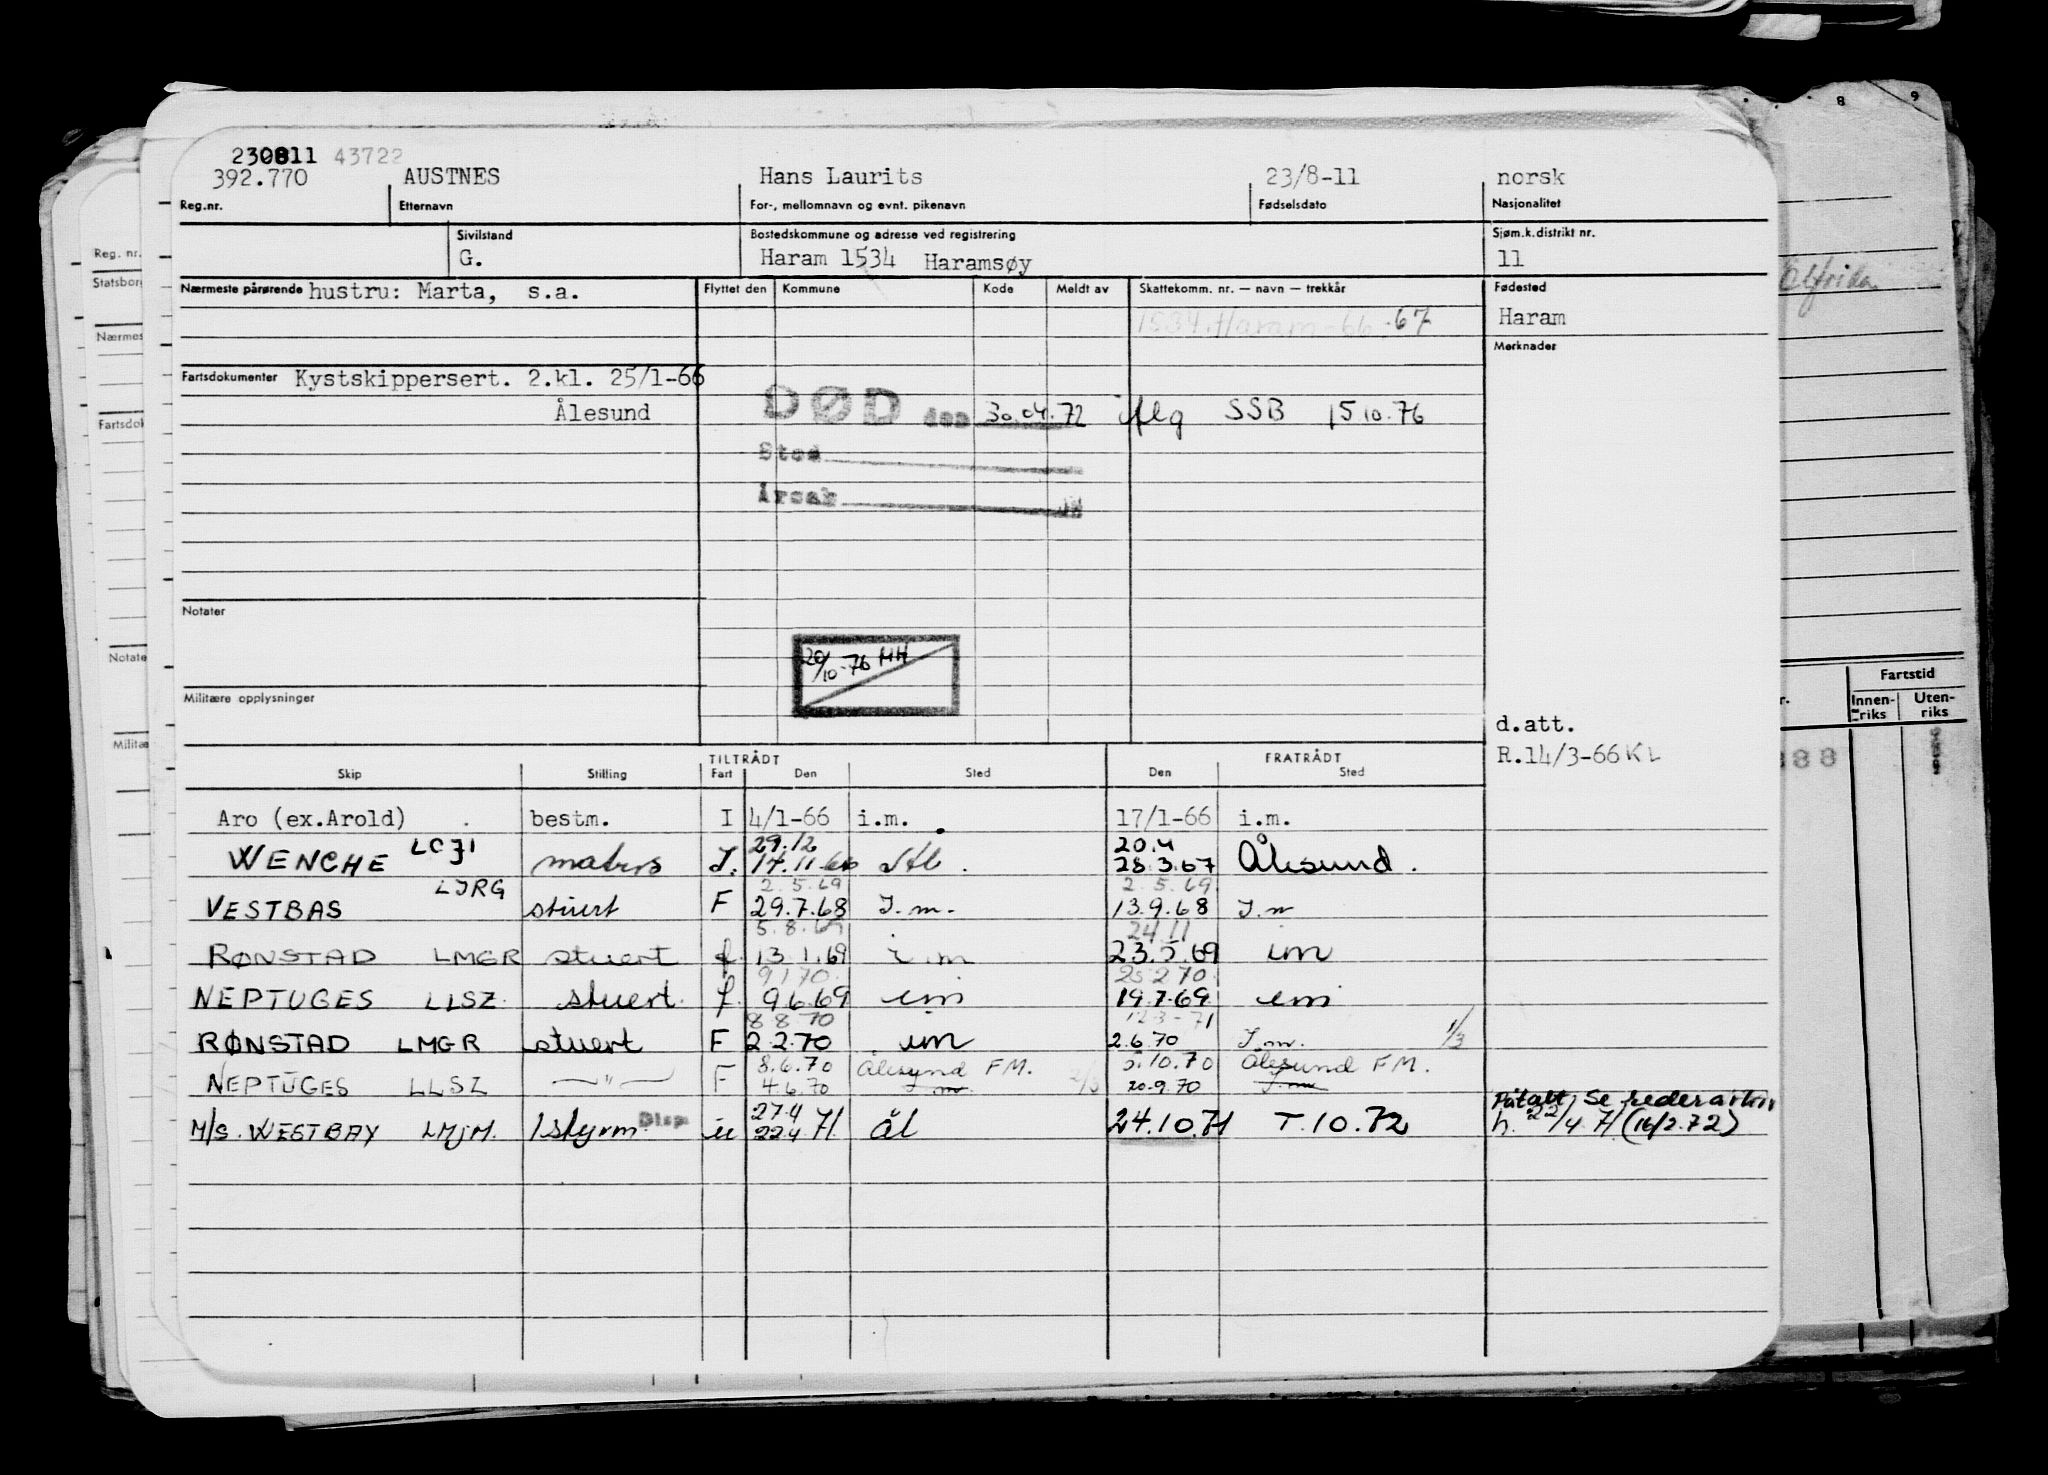 230811 43722
392.770 AUSTNES Hans Laurits 23/8-11 norsk
Reg.nr. Etternavn For-, mellomnavn og evnt. pikenavn Fødselsdato Nasjonalitet
Sivilstand Bostedskommune og adresse ved registrering Sjøm.k.distrikt nr.
G. Haram 1534 Haramsøy 11
Nærmeste pårørende hustru: Marta, s.a. Flyttet den Kommune Kode Meldt av Skattekomm. nr. — navn — trekkår Fødested
1534 Haram-66-67 Haram
Merknader
Fartsdokumenter Kystskippersert. 2.kl. 25/1-66
Ålesund DØD den 30.04.72 iflg SSB 15.10.76
Sted
Årsak
Notater
20/10-76 HH
Militære opplysninger
d.att.
R.14/3-66 KL
TILTRÅDT FRATRÅDT
Skip Stilling Fart Den Sted Den Sted
Aro (ex.Arold) bestm. I 4/1-66 i.m. 17/1-66 i.m.
29.12 20.4
WENCHE matros I. 17.11.66 28.3.67 Ålesund.
LJRG 2.5.69 2.5.69
VESTBAS stuert F 29.7.68 I.m. 13.9.68 I.m
5.8.69 24.11
RØNSTAD LMGR stuert f. 13.1.69 i.m 23.5.69 im
9.1.70 25.2.70
NEPTUGES LLSZ stuert. f. 9.6.69 im 19.7.69 im
8.8.70 12.3-71
RØNSTAD LMGR stuert F 2.2.70 im 2.6.70 I.m. 1/3
8.6.70 Ålesund FM. 5.10.70 Ålesund FM.
NEPTUGES LLSZ —"— F 4.6.70 I.m. 20.9.70 I.m
27.4 Påtalt. Se rederarkiv
M/S. WESTBAY LMJM. 1 styrm. Disp u 22.4.71. ål 24.10.71 T.10.72 h. 22/4 71 (16/2.72)
Reg. nr.
Statsborg
Nærmes
Fartsdok
Notate
Militæ
8 9
Alfrida
Fartstid
Innen-riks Uten-riks